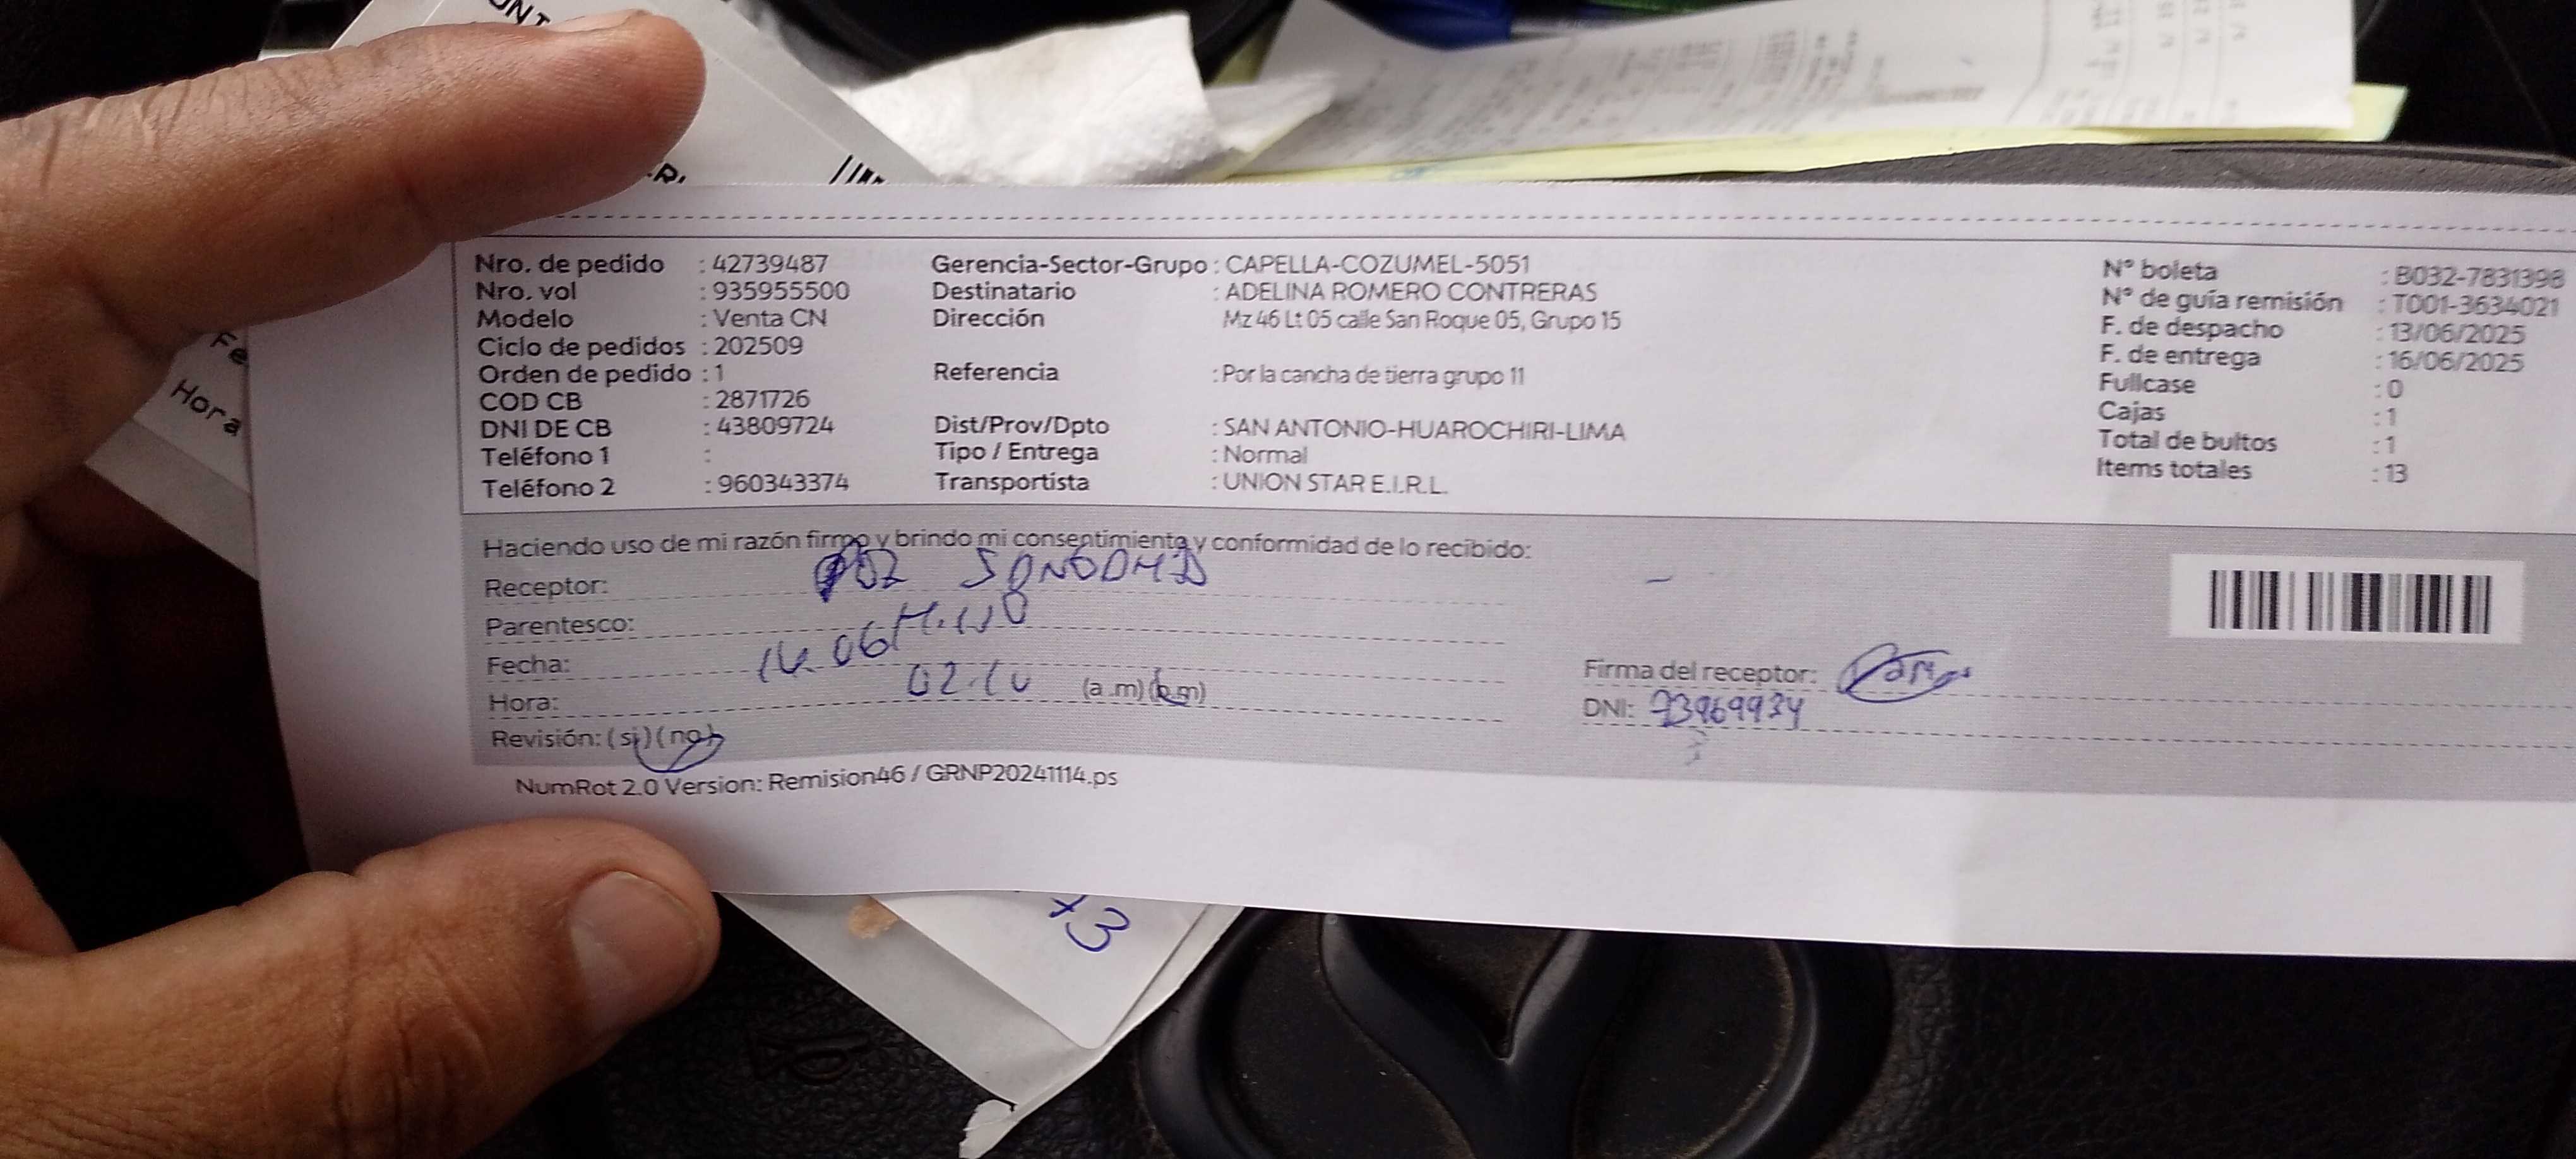 Nro. de pedido : 42739487 Gerencia-Sector-Grupo : CAPELLA-COZUMEL-5051 N° boleta : B032-7831398
Nro. vol : 935955500 Destinatario : ADELINA ROMERO CONTRERAS N° de guía remisión : T001-3634021
Modelo : Venta CN Dirección Mz 46 Lt 05 calle San Roque 05, Grupo 15 F. de despacho : 13/06/2025
Ciclo de pedidos : 202509 F. de entrega : 16/06/2025
Orden de pedido : 1 Referencia : Por la cancha de tierra grupo 11 Fullcase : 0
COD CB : 2871726 Cajas : 1
DNI DE CB : 43809724 Dist/Prov/Dpto : SAN ANTONIO-HUAROCHIRI-LIMA Total de bultos : 1
Teléfono 1 : Tipo / Entrega : Normal Items totales : 13
Teléfono 2 : 960343374 Transportista : UNION STAR E.I.R.L.
Haciendo uso de mi razón firmo y brindo mi consentimiento y conformidad de lo recibido:
Receptor:
Parentesco:
Fecha:
Hora: (a.m) (p.m)
Firma del receptor:
DNI: 73969934
Revisión: (si) (no)
NumRot 2.0 Version: Remision46 / GRNP20241114.ps
Hora
x3